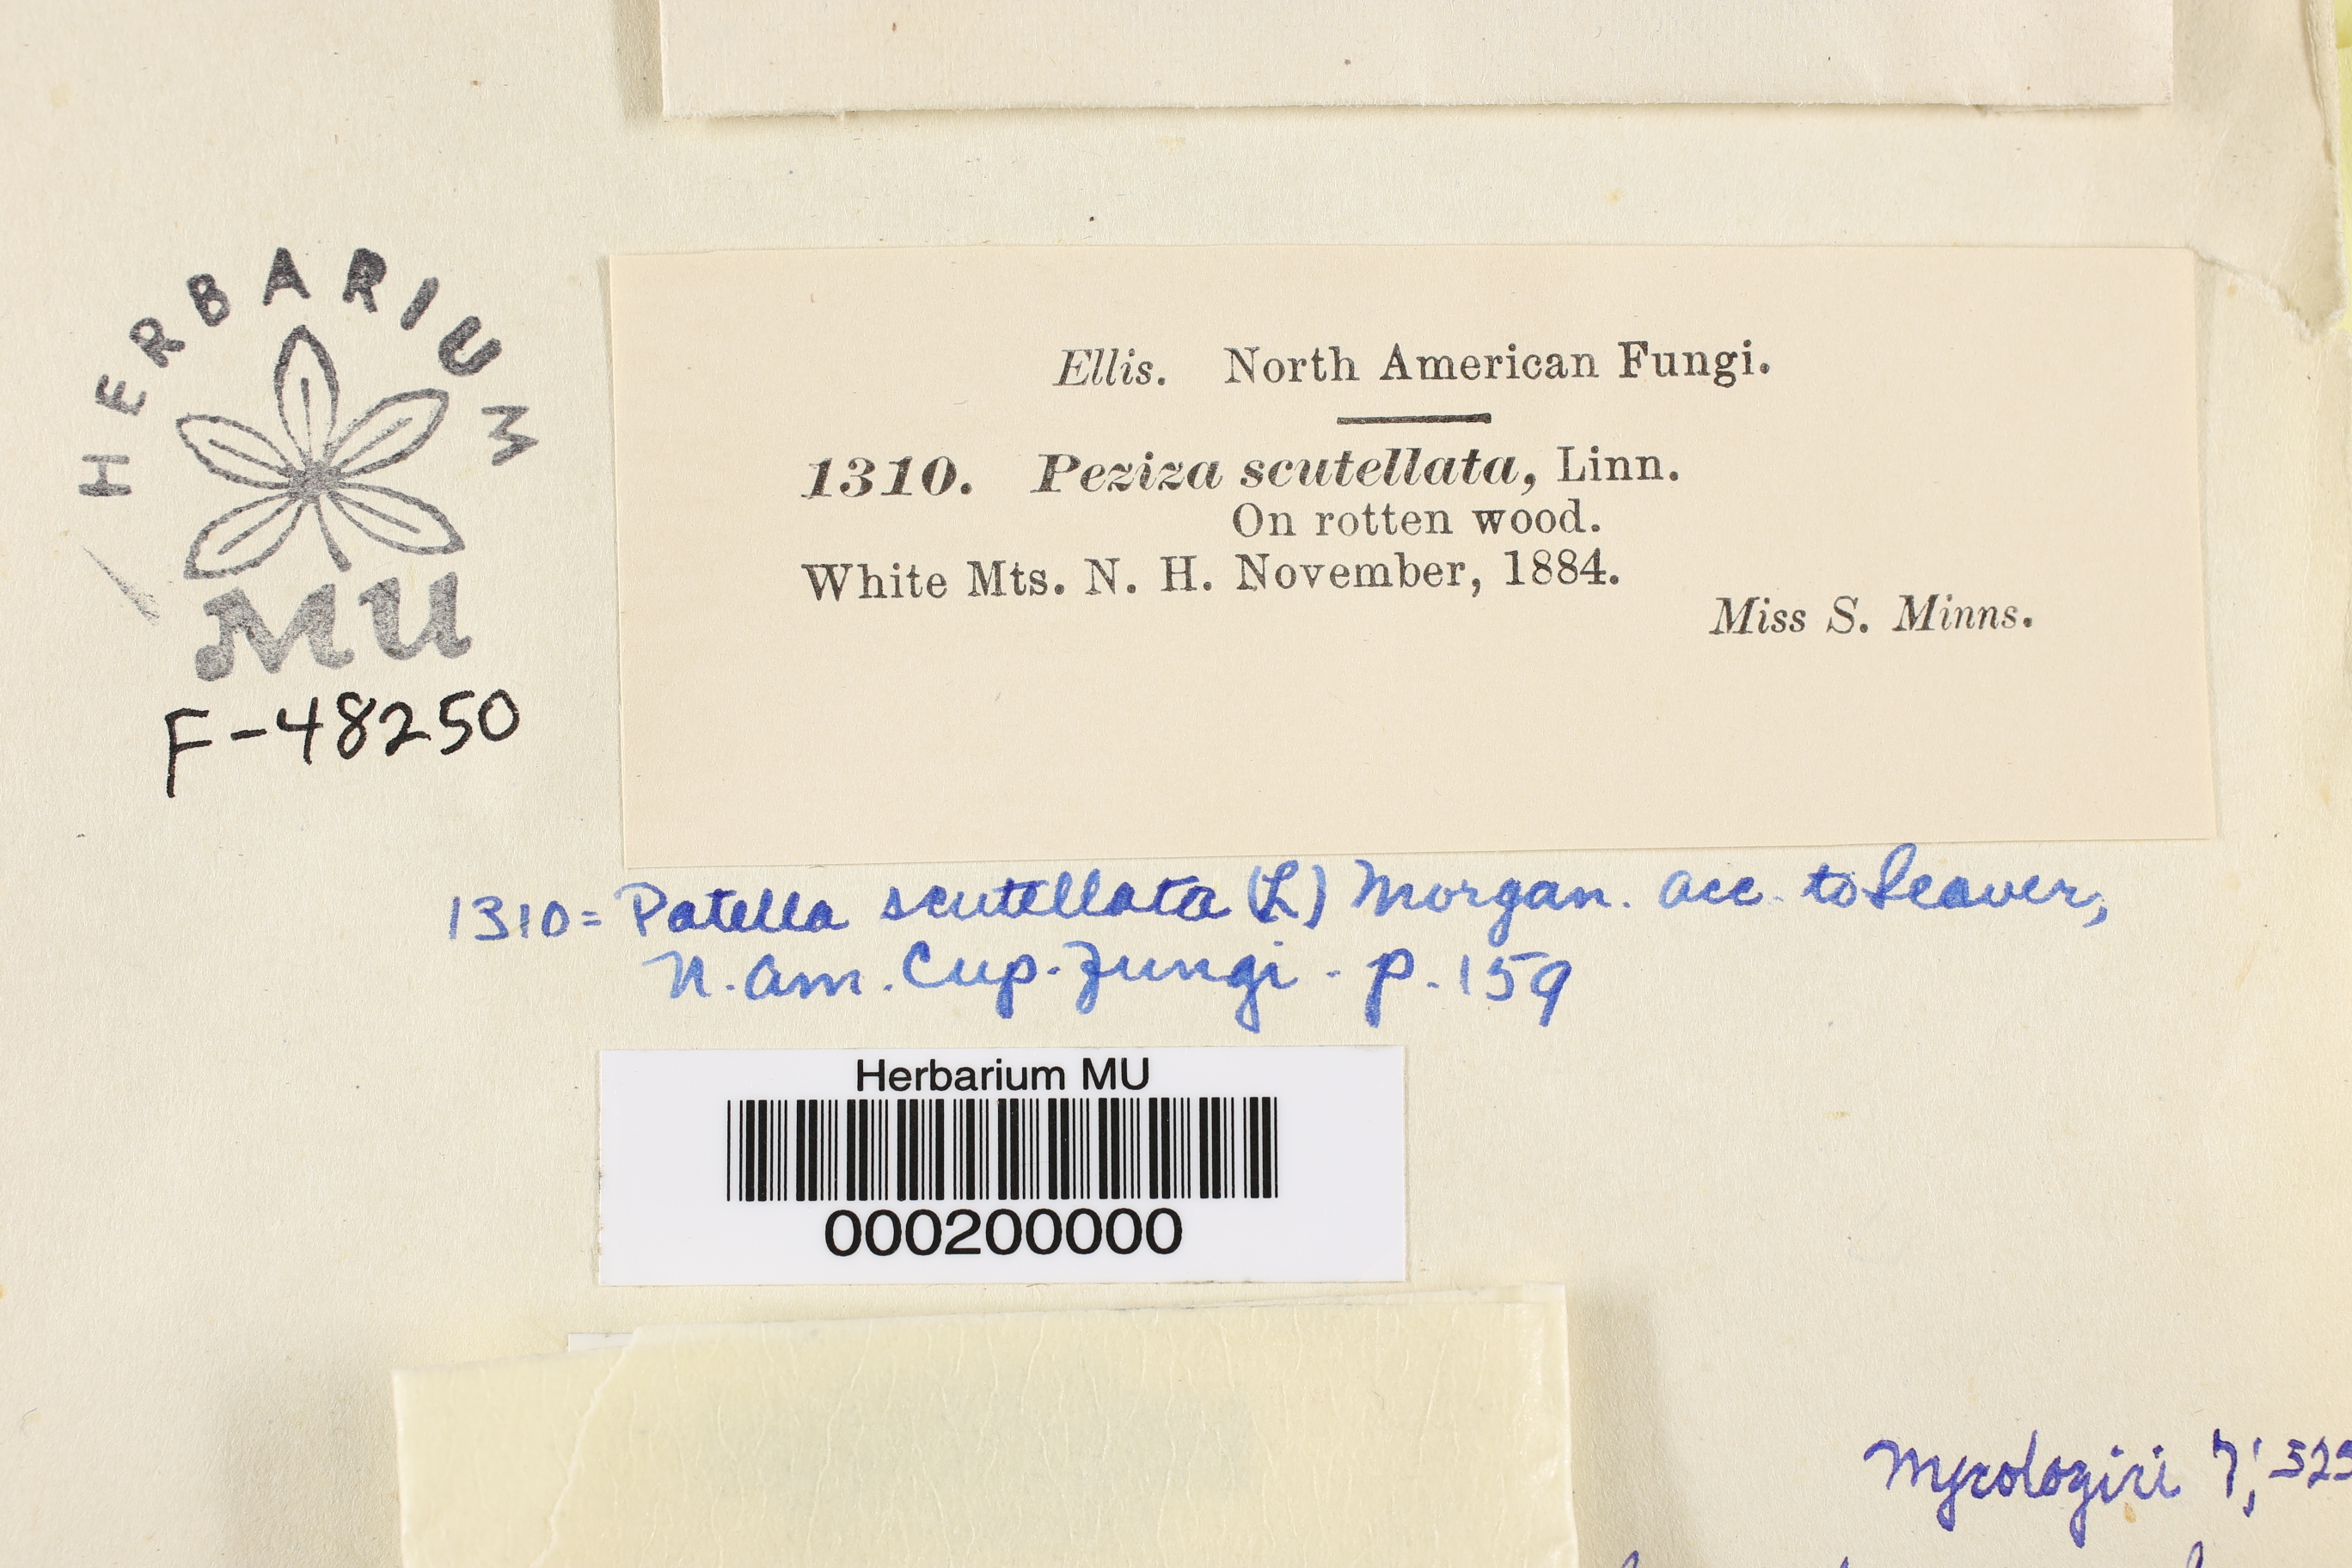 HERBARIUM
MU
F-48250
Ellis. North American Fungi.
1310. Peziza scutellata, Linn.
On rotten wood.
White Mts. N. H. November, 1884.
Miss S. Minns.
1310 = Patella scutellata (L) Morgan. acc. to Seaver,
N. Am. Cup-Fungi - p. 159
Herbarium MU
000200000
7; 323